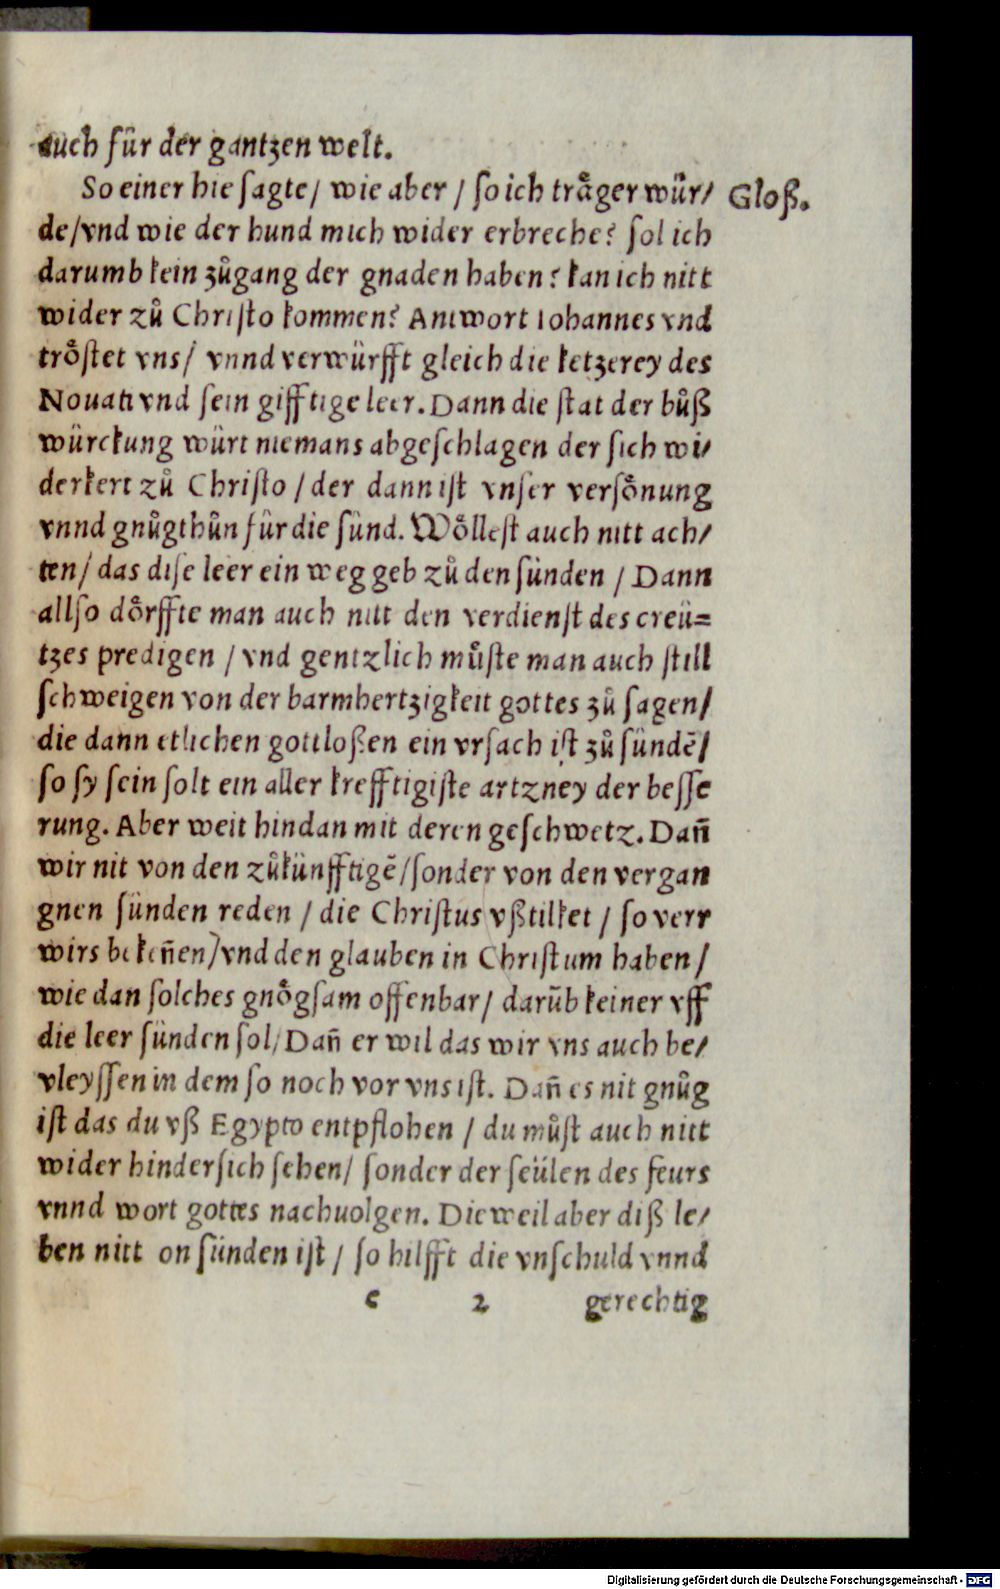 auch für der gantzen welt.
So einer hie ſagte/ wie aber / ſo ich traͤger wuͤr/
Gloß.
de/vnd wie der hund mich wider erbreche? ſol ich
darumb kein zuͦgang der gnaden haben? kan ich nitt
wider zuͦ Chriſto kommen? Antwort Iohannes vnd
troͤſtet vns/ vnnd verwürfft gleich die ketzerey des
Nouati vnd ſein gifftige leer. Dann die ſtat der buͦß
würckung würt niemans abgeſchlagen der ſich wi/
derkert zuͦ Chriſto / der dann iſt vnſer verſoͤnung
vnnd gnuͦgthuͦn für die ſünd. Woͤlleſt auch nitt ach/
ten/ das diſe leer ein weg geb zuͦ den ſünden / Dann
allſo doͤrffte man auch nitt den verdienſt des creü=
tzes predigen / vnd gentzlich muͤſte man auch ſtill
ſchweigen von der barmhertzigkeit gottes zuͦ ſagen/
die dann etlichen gottloßen ein vrſach iſt zuͦ ſündē/
ſo ſy ſein ſolt ein aller krefftigiſte artzney der beſſe
rung. Aber weit hindan mit deren geſchwetz. Dañ
wir nit von den zuͦkünfftigē/ſonder von den vergan
gnen ſünden reden / die Chriſtus vßtilket / ſo verr
wirs bekeñen/vnd den glauben in Chriſtum haben/
wie dan ſolches gnoͤgſam offenbar/ darūb keiner vff
die leer ſünden ſol/Dañ er wil das wir vns auch be/
vleyſſen in dem ſo noch vor vns iſt. Dañ es nit gnuͦg
iſt das du vß Egypto entpflohen / du muͦſt auch nitt
wider hinderſich ſehen/ ſonder der ſeülen des feurs
vnnd wort gottes nachuolgen. Dieweil aber diß le/
ben nitt on ſünden iſt / ſo hilfft die vnſchuld vnnd
c 2 gerechtig
Digitalisierung gefördert durch die Deutsche Forschungsgemeinschaft - DFG